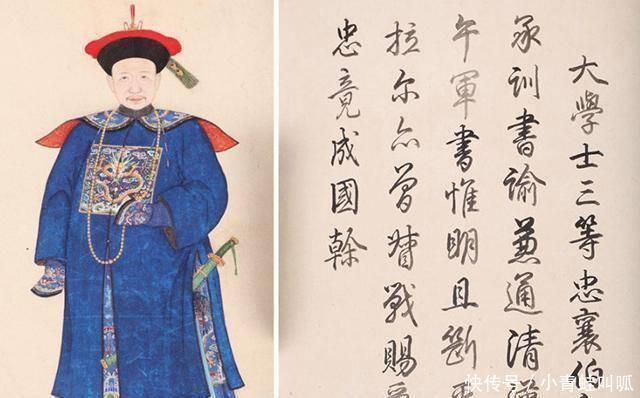 大學士三等忠襄伯
承訓書諭兼通清
午軍書惟明且斷
拉尔亦曾督戰賜
忠竟成國榦
快传号 / 小青蛙叫呱